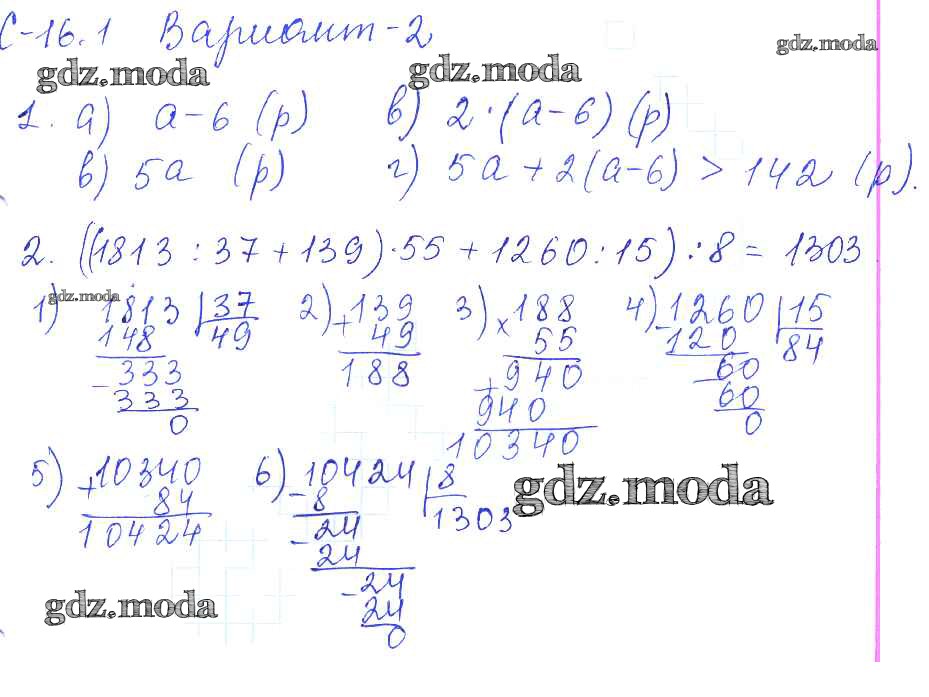 С-16.1 Вариант-2
gdz.moda gdz.moda gdz.moda
1. а) a-6 (р) в) 2·(a-6) (р)
в) 5a (р) г) 5a+2(a-6) > 142 (р).
2. ((1813:37+139)·55+1260:15):8=1303
gdz.moda
1) 1813 37 2) 139 3) 188 4) 1260 15
148 49 + 49 × 55 - 120 84
- 333 188 + 940 - 60
333 940 60
0 10340 0
5) +10340 6) 10424 8
84 - 8 1303 gdz.moda
10424 - 24
24
- 24
gdz.moda 24
0